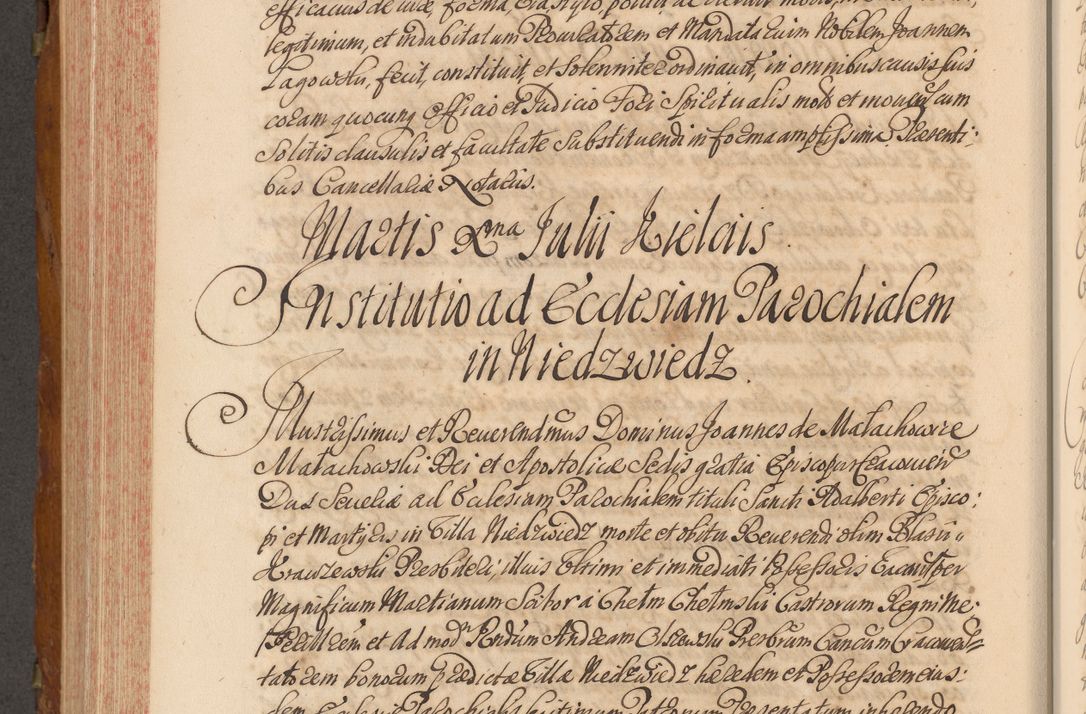 efficacius de iure, forma et stylo, potuit ac debuit modo,
legitimum, et indubitatum Procuratorem et Mandatarium Nobilem Joannem
Lagowski, fecit, constituit, et solenniter ordinavit, in omnibus causis suis
coram quocunq Officio et Judicio Fori Spiritualis moto et movens cum
solitis clausulis et facultate substituendi in forma amplissima. Praesenti:
bus Cancellariae Notariis.
Martis Xma Julii Kielciis
Institutio ad Ecclesiam Parochialem
in Niedzwiedz.
Illustrissimus et Reverendmus Dominus Joannes de Małachowice
Małachowski Dei et Apostolicae Sedis gratia Episcopus Cracovien
Dux Severiae ad Ecclesiam Parochialem tituli Sancti Adalberti Episco:
pi et Martyris in Villa Niedzwiedz morte et obitu Reverendi olim Blasii
Krawzewski Presbiteri, illius ultimi et immediati Possessoris vacan per
Magnificum Martianum Scibor a Chełm Chełmski Castrorum Regni Me:
et Admod Rndum Andream Olszowski Presbrum Cancum
tatorem bonorum praedictae Villae Niedzwiedz haeredem et Possessorem eius:
dem Ecclesiae Parochialis legitimum Patronum Praesentatum inhaerendo